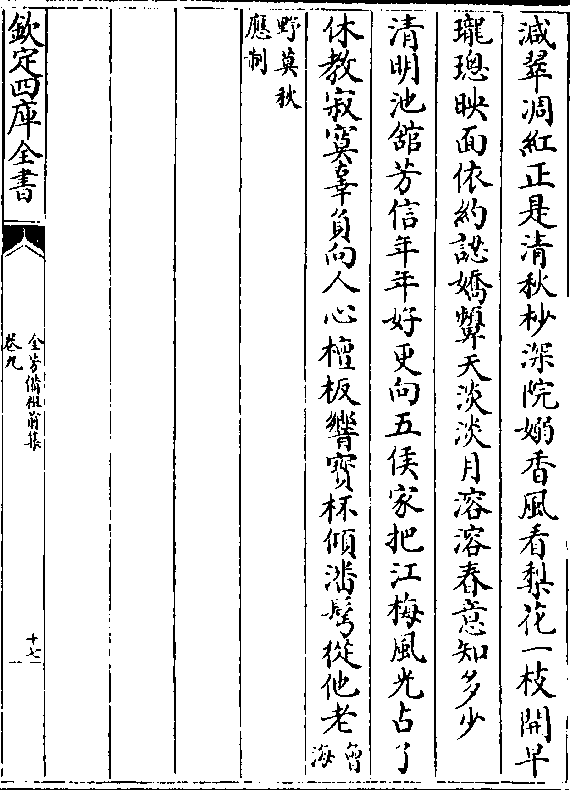 減翠凋紅正是清秋杪深院嫋香風看梨花一枝開早
瓏璁映面依約認嬌顰天淡淡月溶溶春意知多少
清明池館芳信年年好更向五侯家把江梅風光占了
休教寂寞辜負向人心檀板響寶杯傾潘鬢從他老曾海
野莫秋
應制
欽定四庫全書
全芳備祖前集
卷九
十七